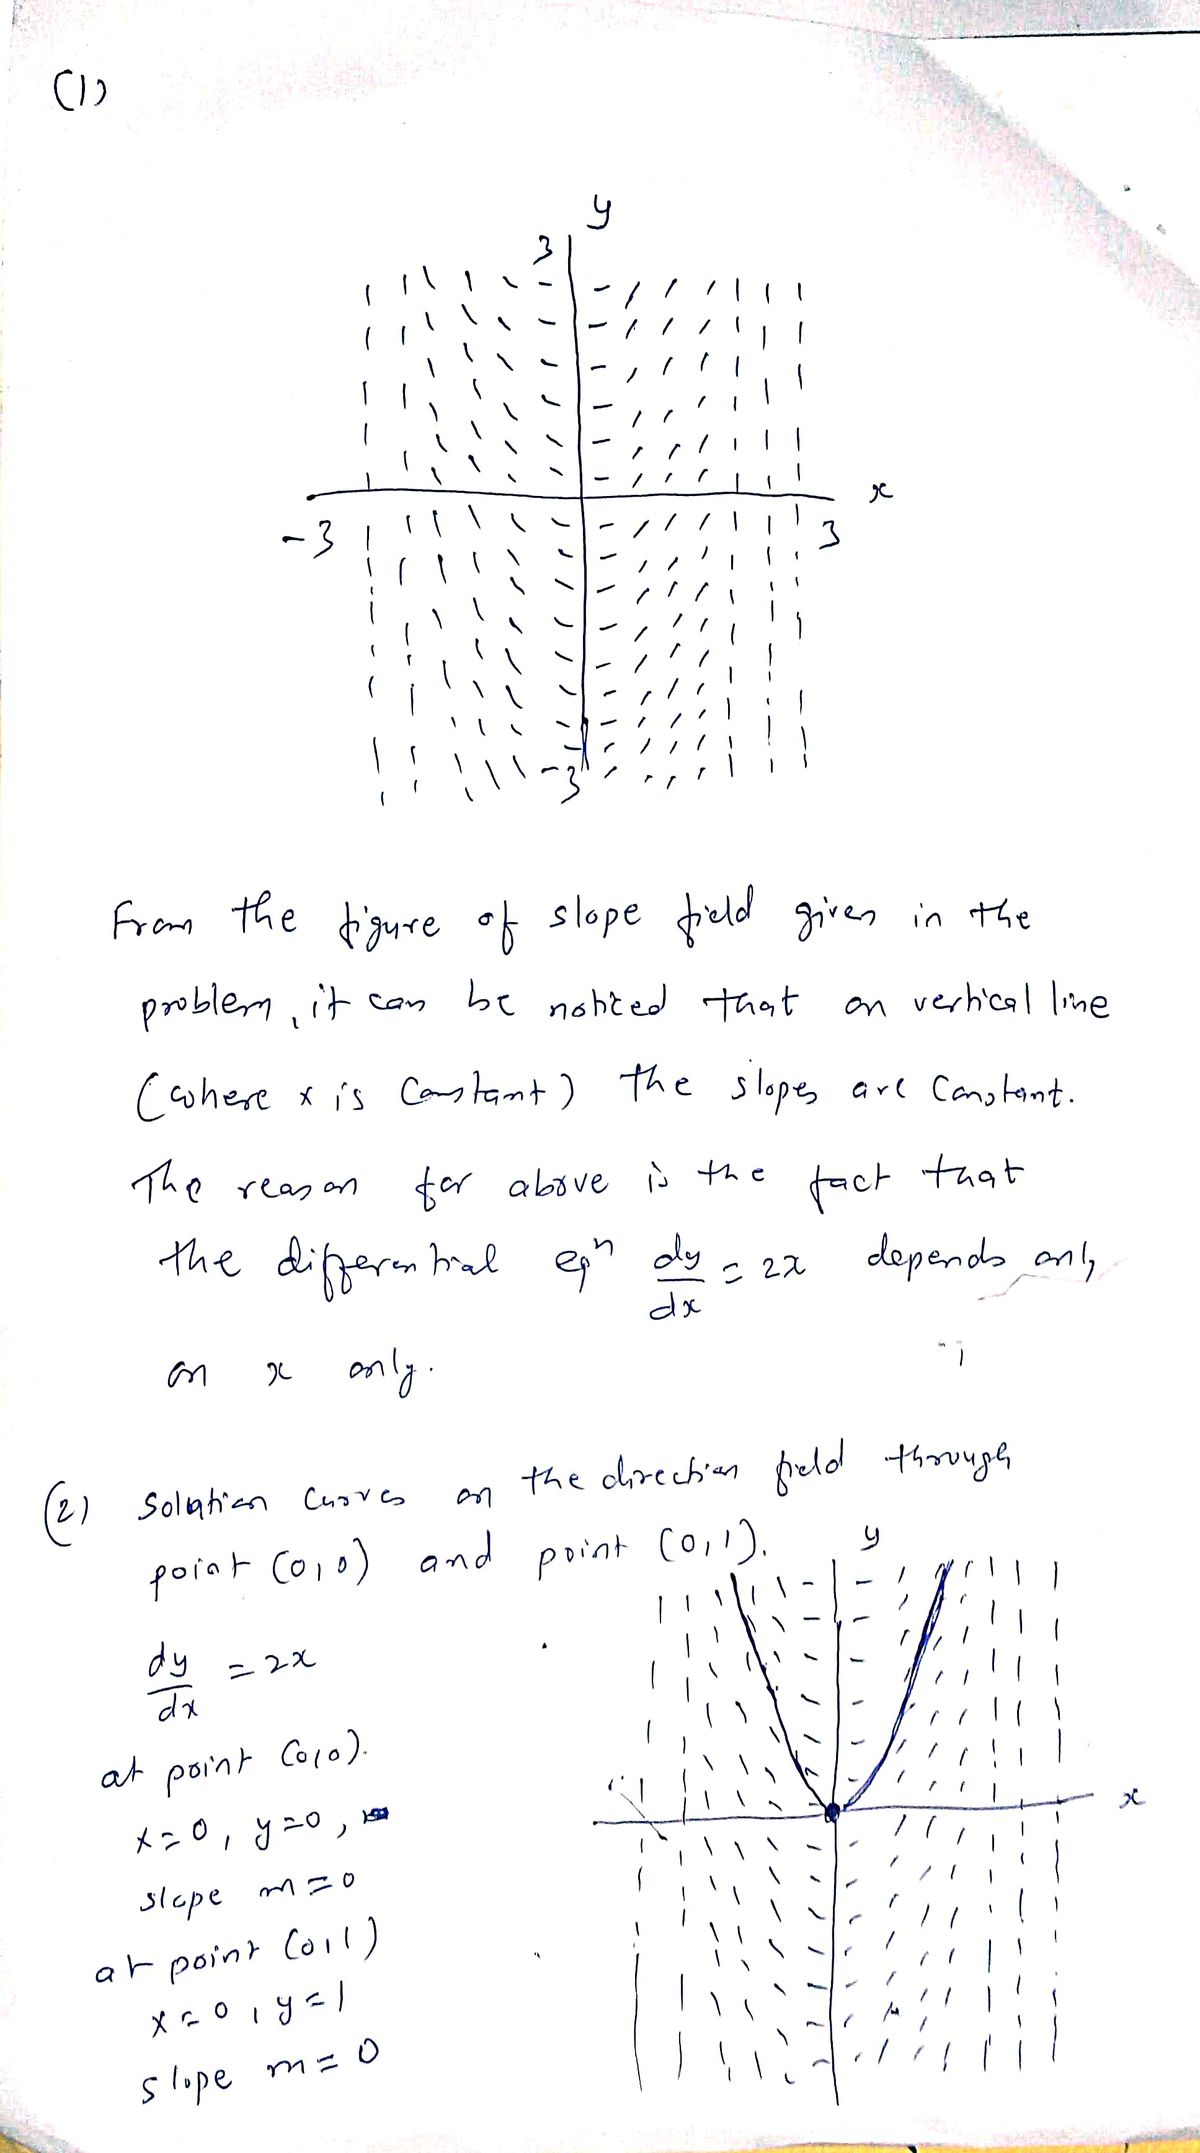 (1)
y
3
x
-3
3
-3
From the figure of slope field given in the
problem, it can be noticed that on vertical line
(where x is constant) the slopes are constant.
The reason for above is the fact that
the differential eqn dy/dx = 2x depends only
on x only.
(2) Solution curves on the direction field through
point (0,0) and point (0,1).
y
dy/dx = 2x
at point (0,0).
x
x=0, y=0,
slope m=0
at point (0,1)
x=0, y=1
slope m=0